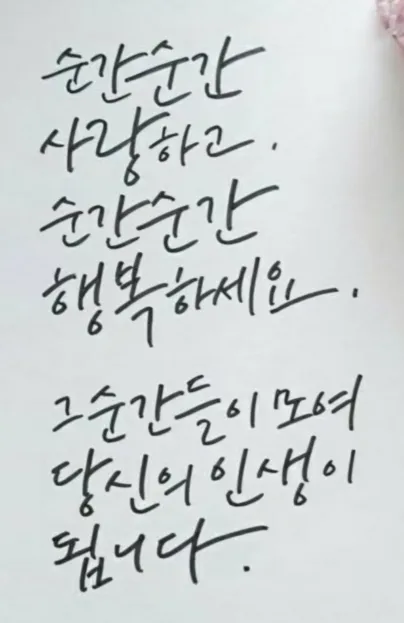 순간순간
사랑하고.
순간순간
행복하세요.
그 순간들이 모여
당신의 인생이
됩니다.